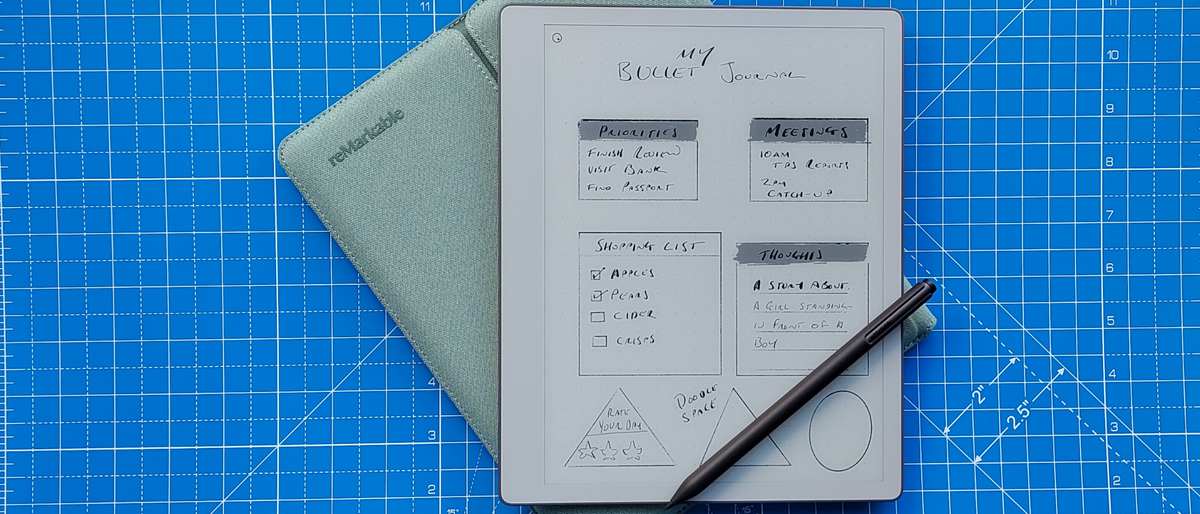 reMarkable
MY
BULLET JOURNAL
PRIORITIES
FINISH REVIEW
VISIT BANK
FIND PASSPORT
MEETINGS
10AM
TPS REPORTS
2PM
CATCH-UP
SHOPPING LIST
APPLES
PEARS
CIDER
CRISPS
THOUGHTS
A STORY ABOUT
A GIRL STANDING
IN FRONT OF A
BOY
RATE
YOUR DAY
DOODLE
SPACE
11
10
9
8
7
6
5
4
3
2
11
4
3
2
2"
2.5"
15°
15°